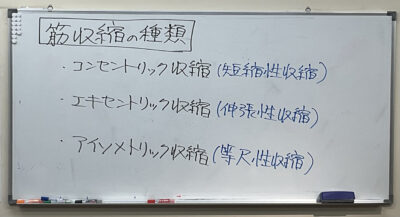 筋収縮の種類
・コンセントリック収縮(短縮性収縮)
・エキセントリック収縮(伸張性収縮)
・アイソメトリック収縮(等尺性収縮)